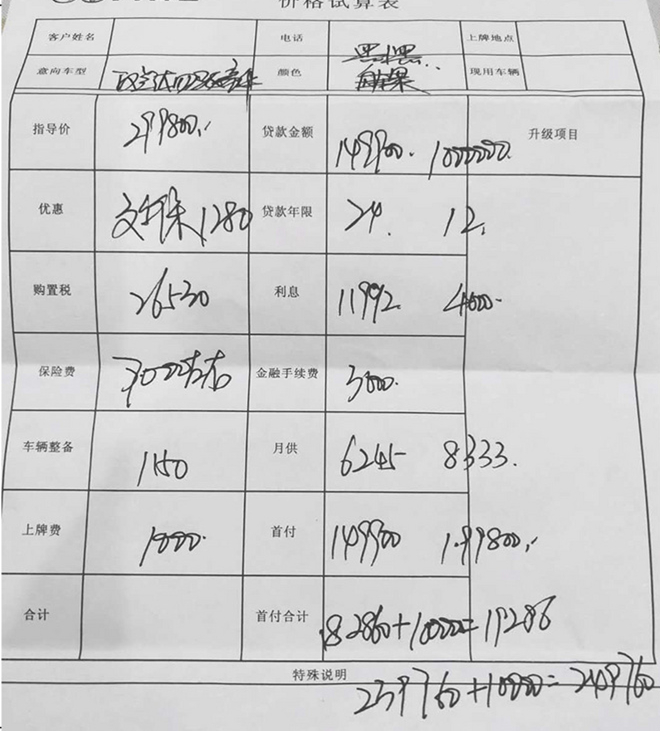 价格试算表
客户姓名 电话 上牌地点
意向车型 颜色 黑 黑 现用车辆
指导价 299800. 贷款金额 149900. 1000000. 升级项目
优惠 1280 贷款年限 24. 12.
购置税 26530 利息 11992. 4000.
保险费 7000左右 金融手续费 3000.
车辆整备 1150 月供 6245 8333.
上牌费 1000. 首付 149900 199800.
合计 首付合计 182860+10000=19286
特殊说明
239760+10000=249760